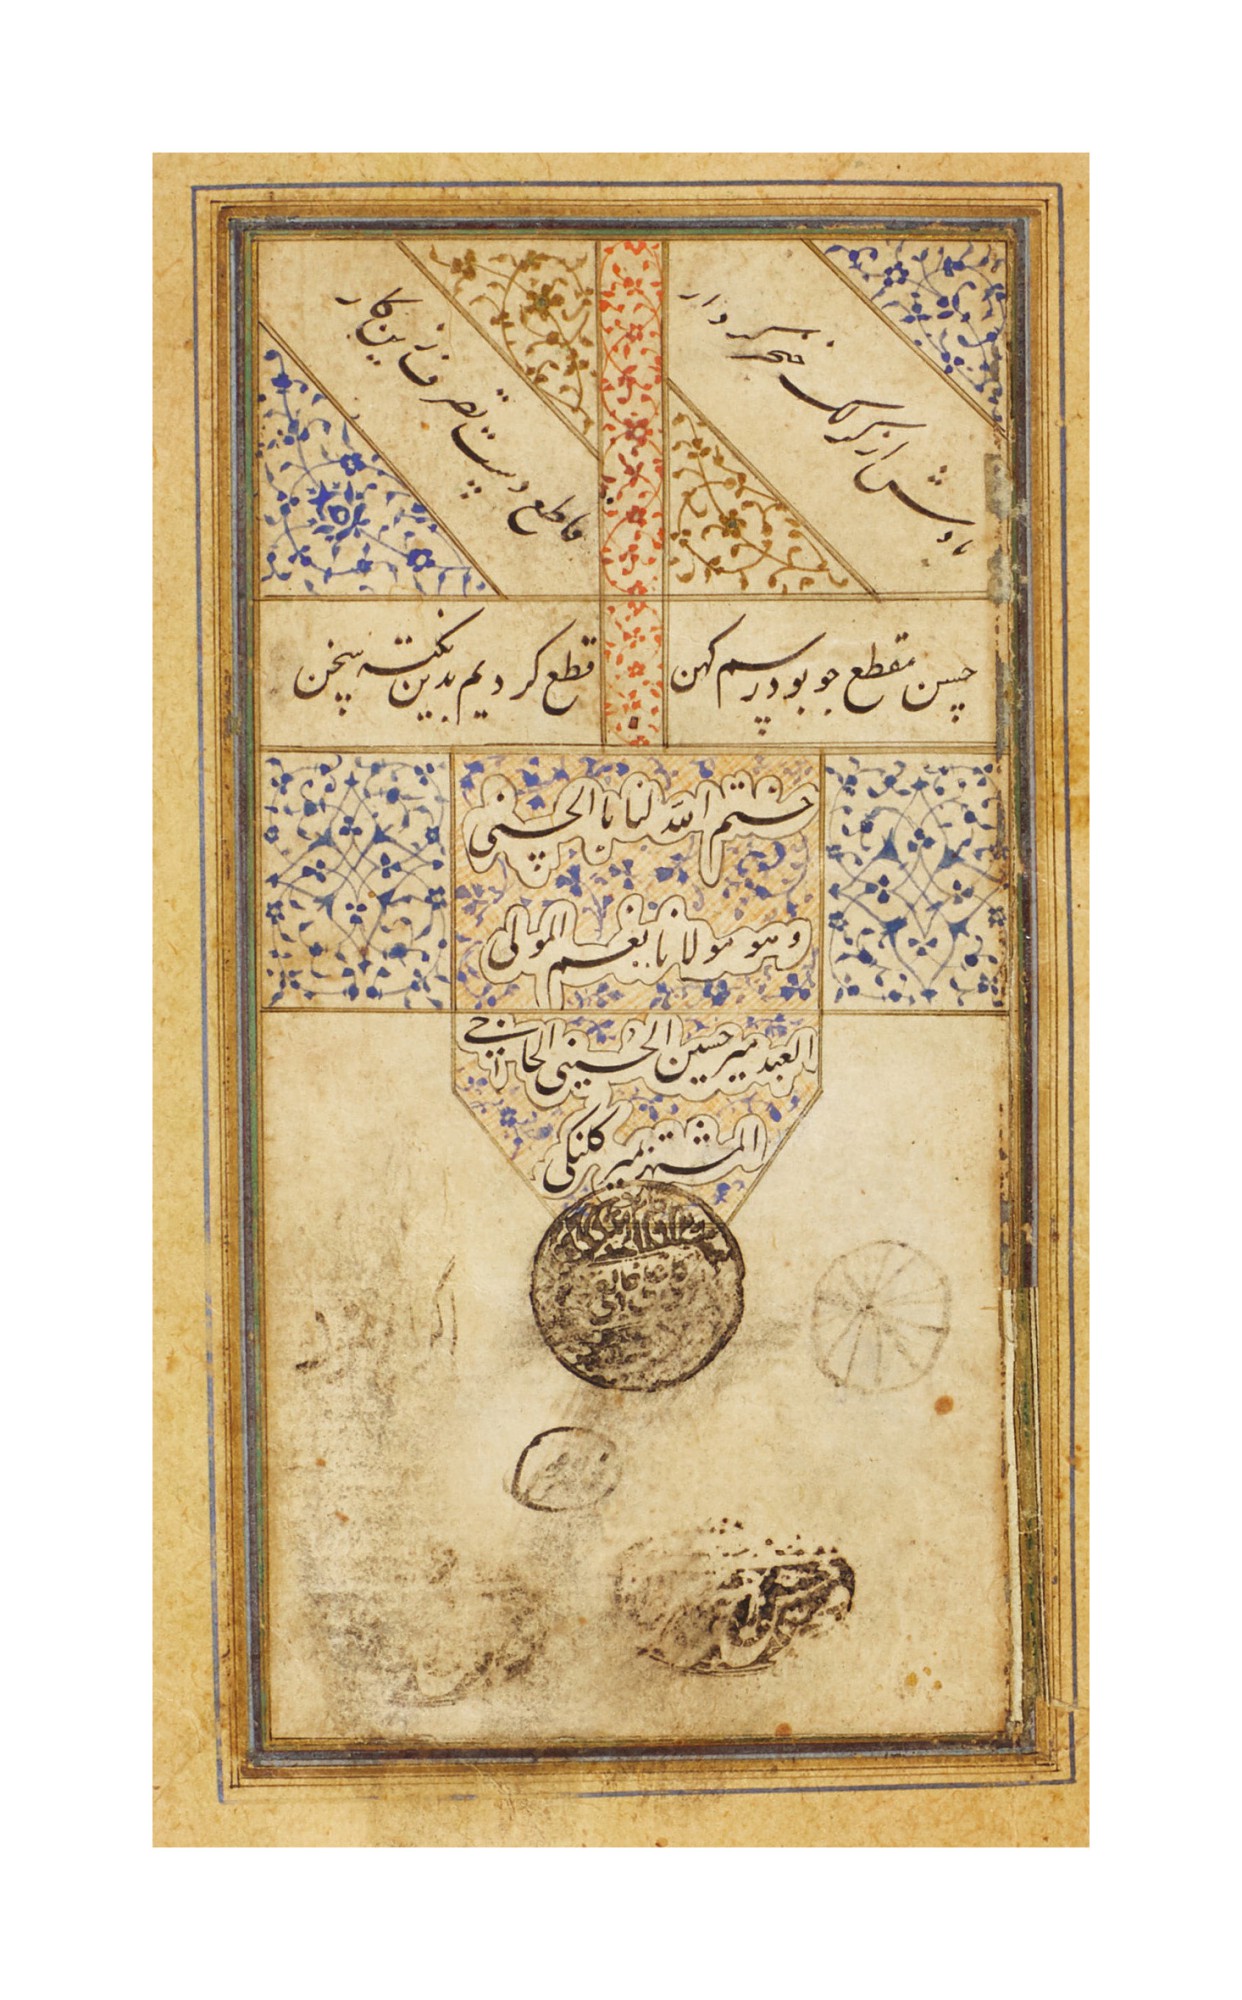 بادش از کزلک خنجر کردار
قاطع دست تصرف زین کار
حسن مقطع چو بود رسم کهن
قطع کردیم بدین نکته سخن
ختم الله لنا بالحسنی
وهو مولانا نعم المولی
العبد میر حسین الحسینی
المشتهر بمیر کلنکی